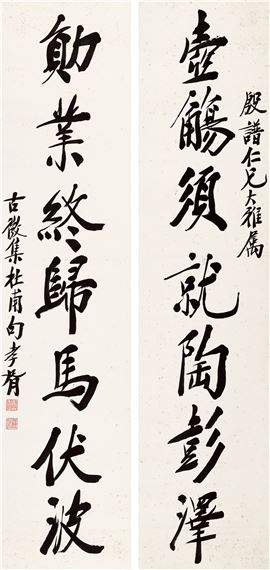 殷譜仁兄大雅属
壺觴須就陶彭澤
勛業終歸馬伏波
古微集杜句孝胥